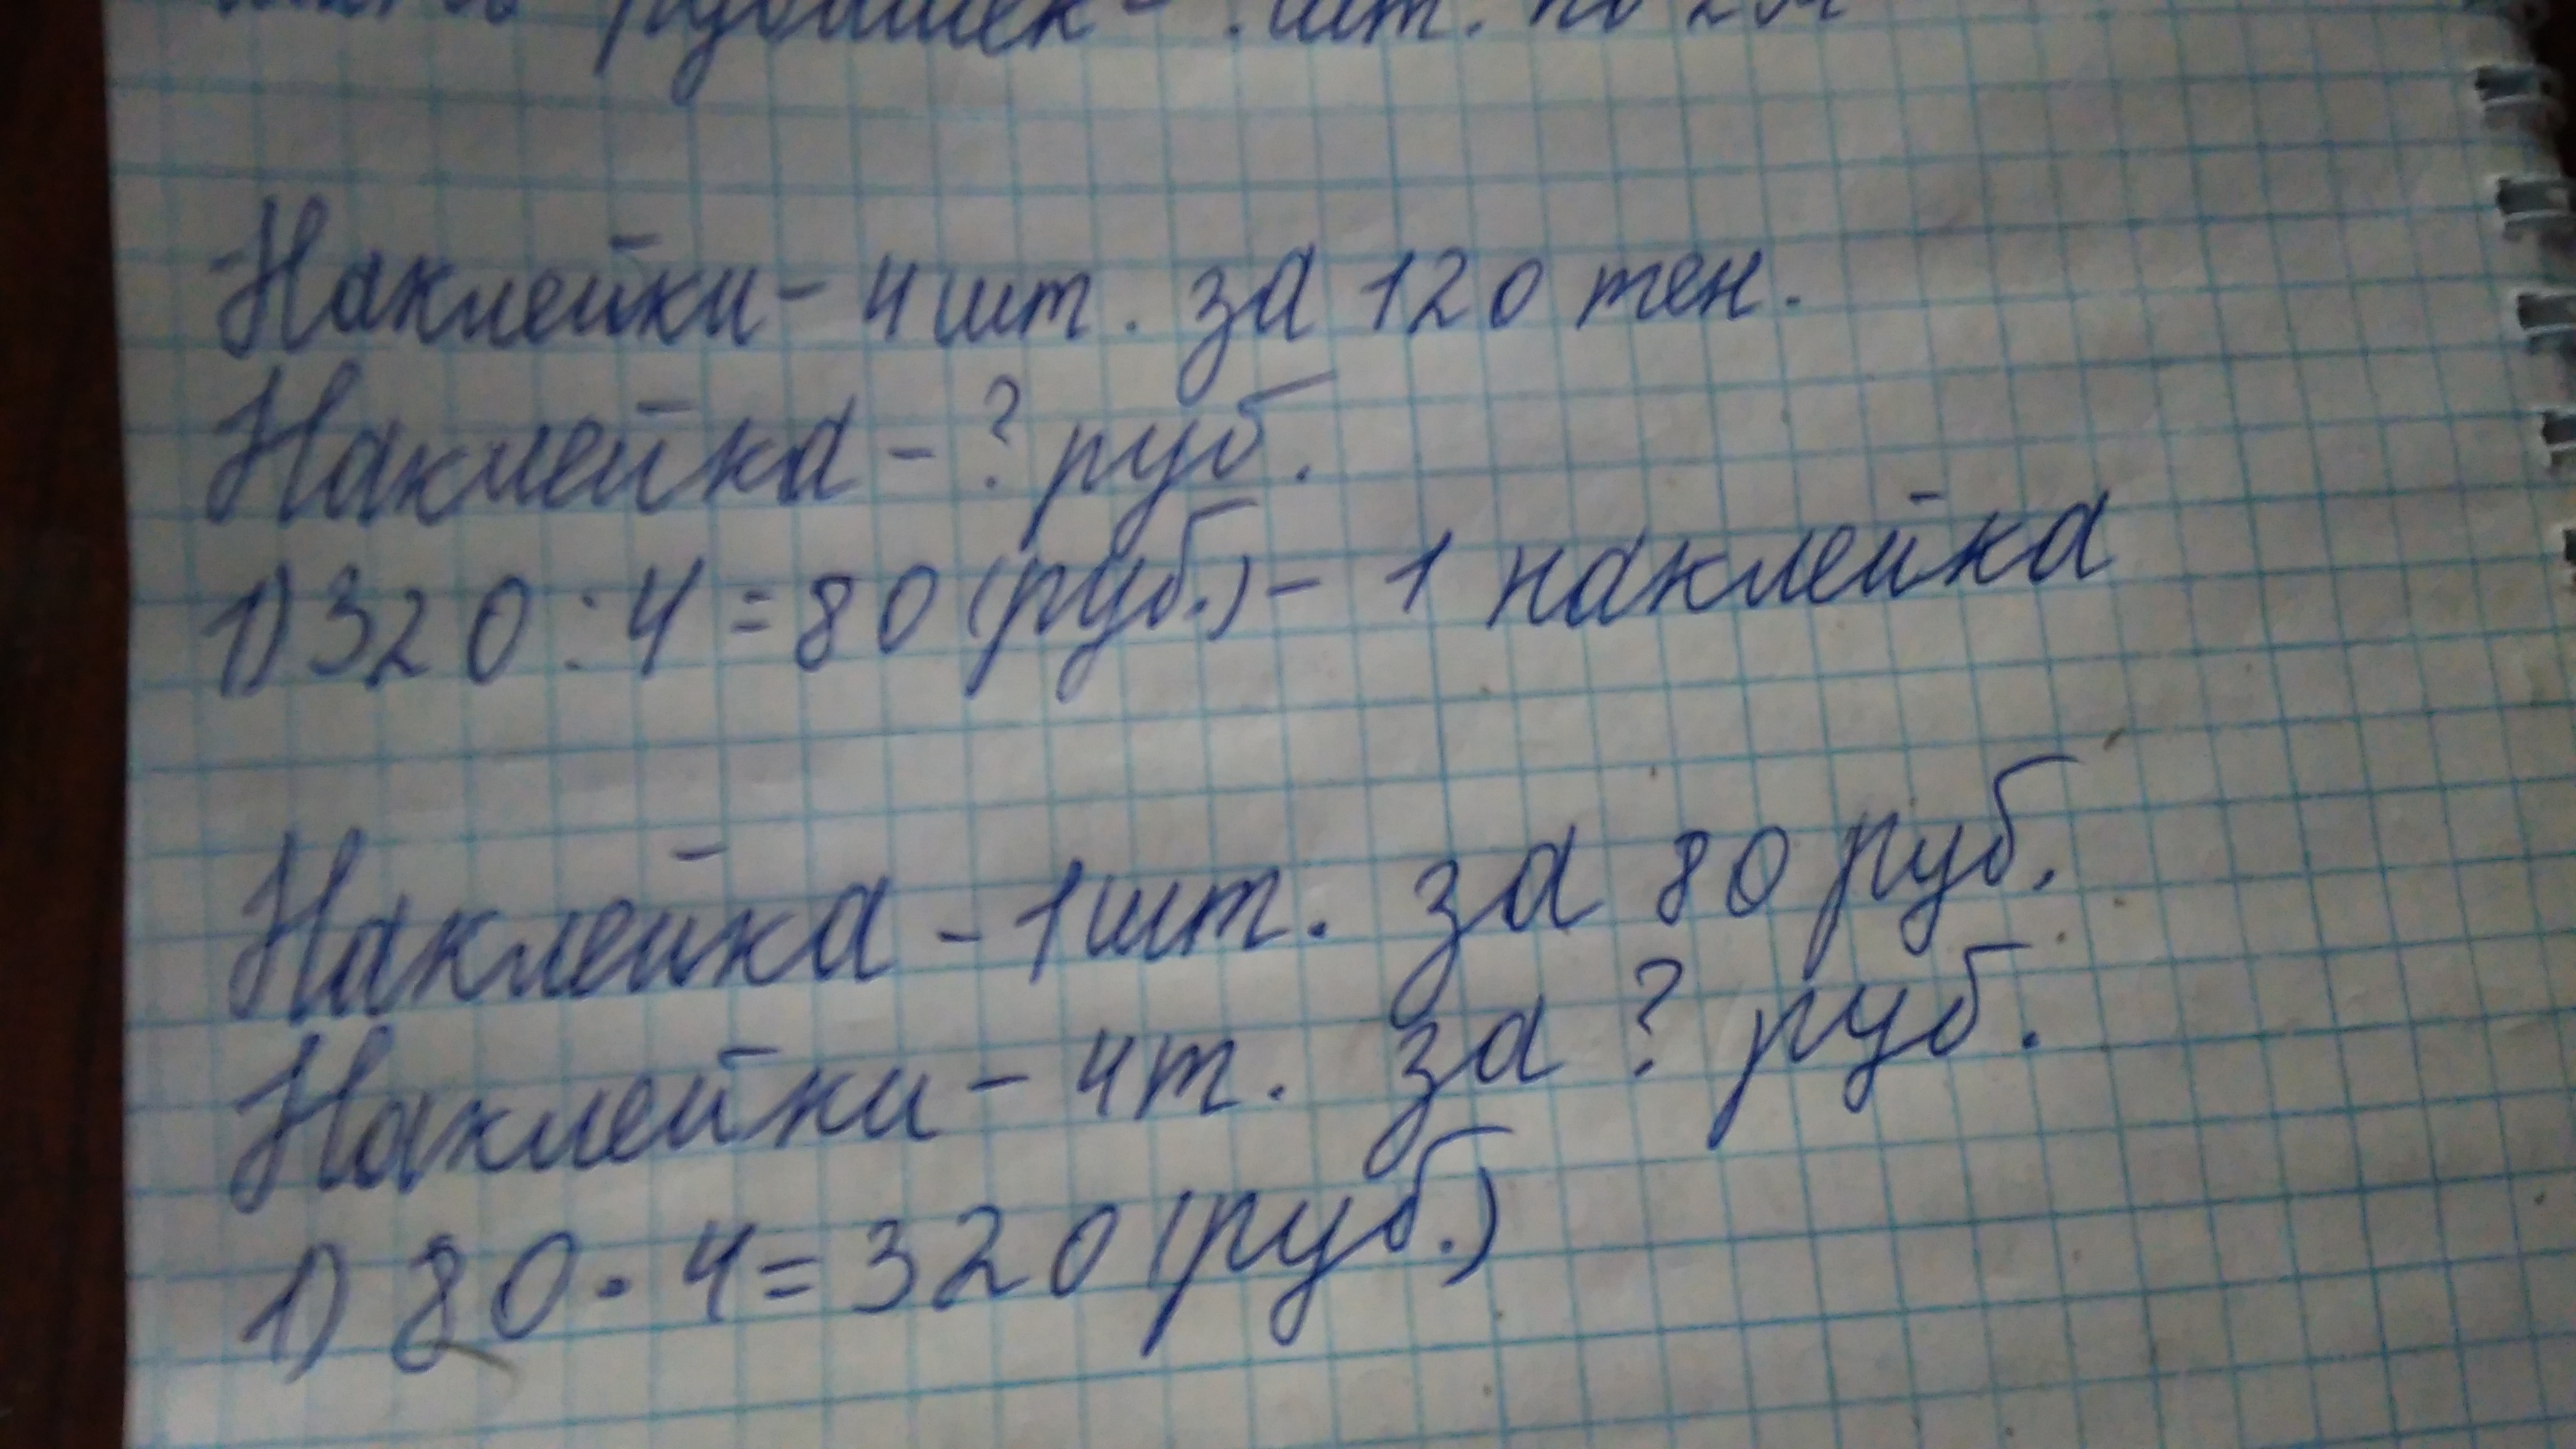 рубашек - . шт. по 2 м
Наклейки - 4 шт. за 120 тен.
Наклейка - ? руб.
1) 320 : 4 = 80 (руб.) - 1 наклейка
Наклейка - 1 шт. за 80 руб.
Наклейки - 4 т. за ? руб.
1) 80 · 4 = 320 (руб.)